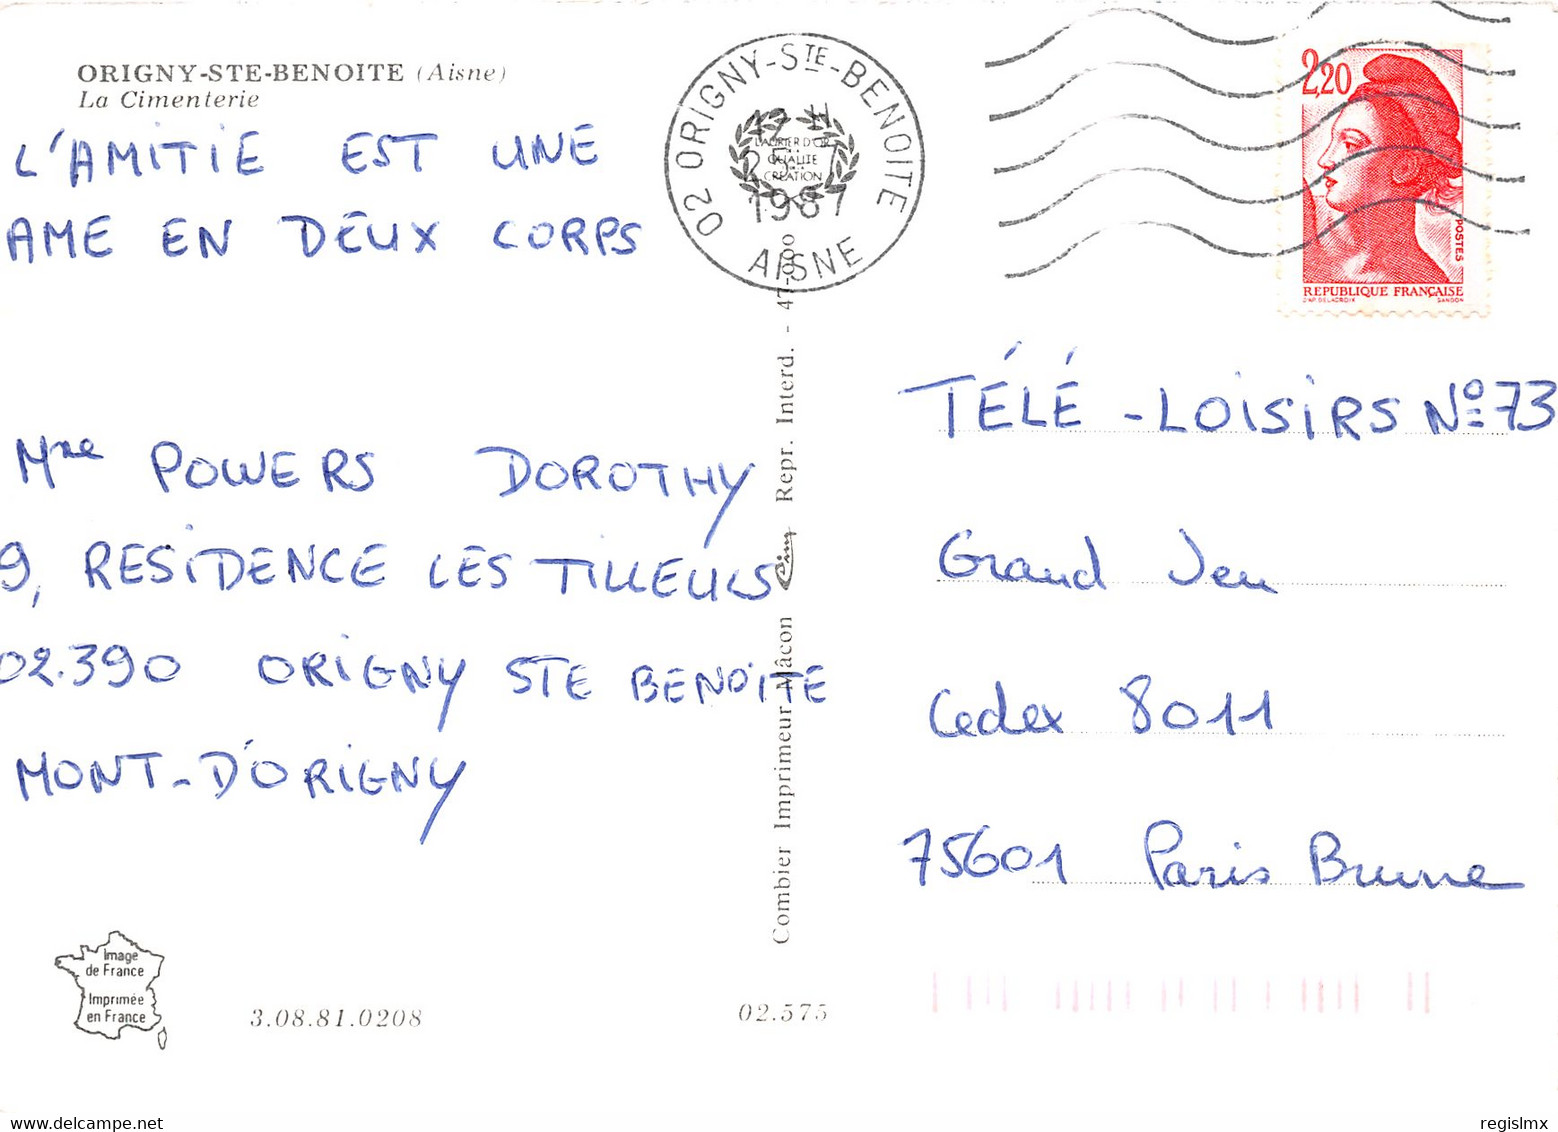 ORIGNY-STE-BENOITE (Aisne)
La Cimenterie
L'AMITIE EST UNE
AME EN DEUX CORPS
Mme POWERS DOROTHY
9, RESIDENCE LES TILLEULS
02.390 ORIGNY STE BENOITE
MONT-D'ORIGNY
Image
de France
Imprimée
en France
3.08.81.0208
02.575
Combier Imprimeur Mâcon Cim Repr. Interd. - 47-000
02 ORIGNY-STE-BENOITE
LAURIER D'OR
QUALITE
CREATION
1987
AISNE
2,20
POSTES
REPUBLIQUE FRANÇAISE
D'AP. DELACROIX GANDON
TÉLÉ-LOISIRS No 73
Grand Jeu
Cedex 8011
75601 Paris Brune
Delcampe.net
regislmx